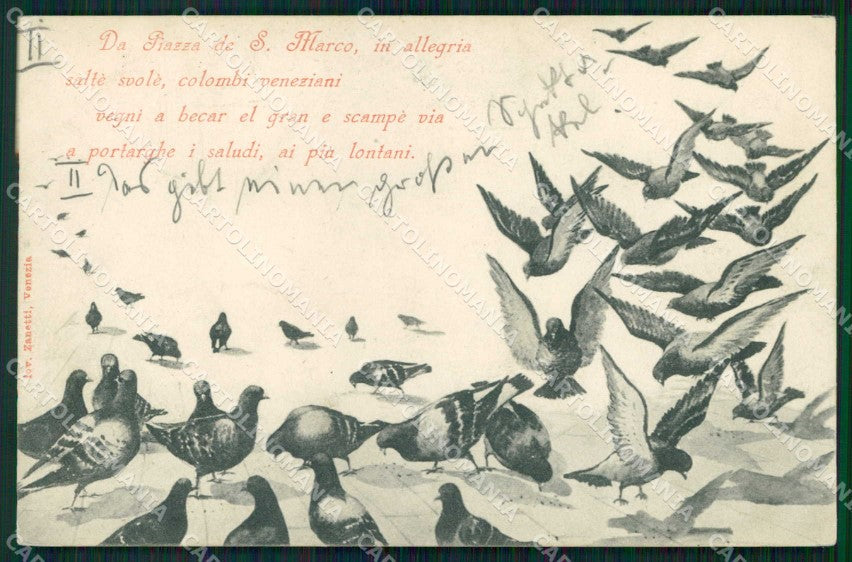 II
Da Piazza de S. Marco, in allegria
saltè svolè, colombi veneziani
vegni a becar el gran e scampè via
a portarghe i saludi, ai piu lontani.
II Das gibt einen großen
Jov. Zanetti, Venezia
CARTOLINOMANIA